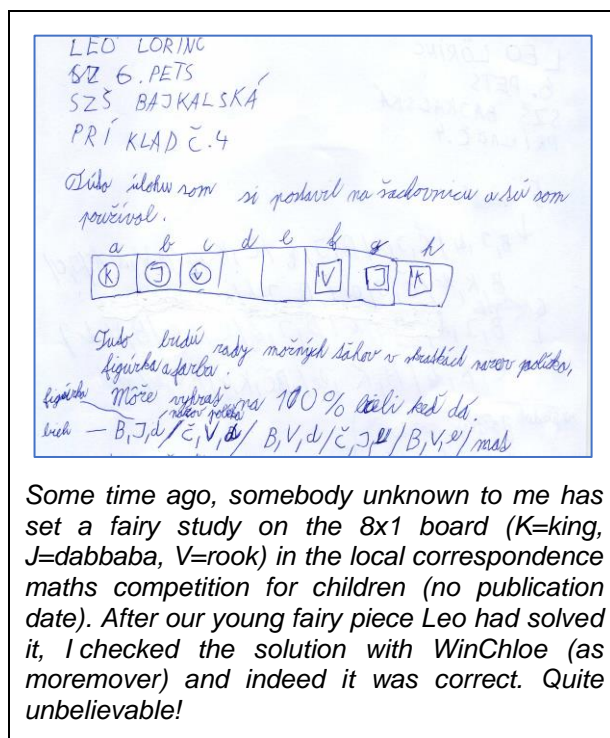 LEO LÖRINC
SZ 6. PETS
SZŠ BAJKALSKÁ
PRÍ KLAD Č.4
Túto úlohu som si postavil na šachovnicu a sú som
použival.
a b c d e f g h
K J V V J K
Tuto budú rady možných ťahov v skratkách názov políčka,
figúrka a farba.
figúrka Môže vyhrať na 100% bieli keď dá,
názov políčka
bieli — B,J,d/Č,V,d/ B,V,d/Č,J,e/B,V,e/mat
Some time ago, somebody unknown to me has
set a fairy study on the 8x1 board (K=king,
J=dabbaba, V=rook) in the local correspondence
maths competition for children (no publication
date). After our young fairy piece Leo had solved
it, I checked the solution with WinChloe (as
moremover) and indeed it was correct. Quite
unbelievable!